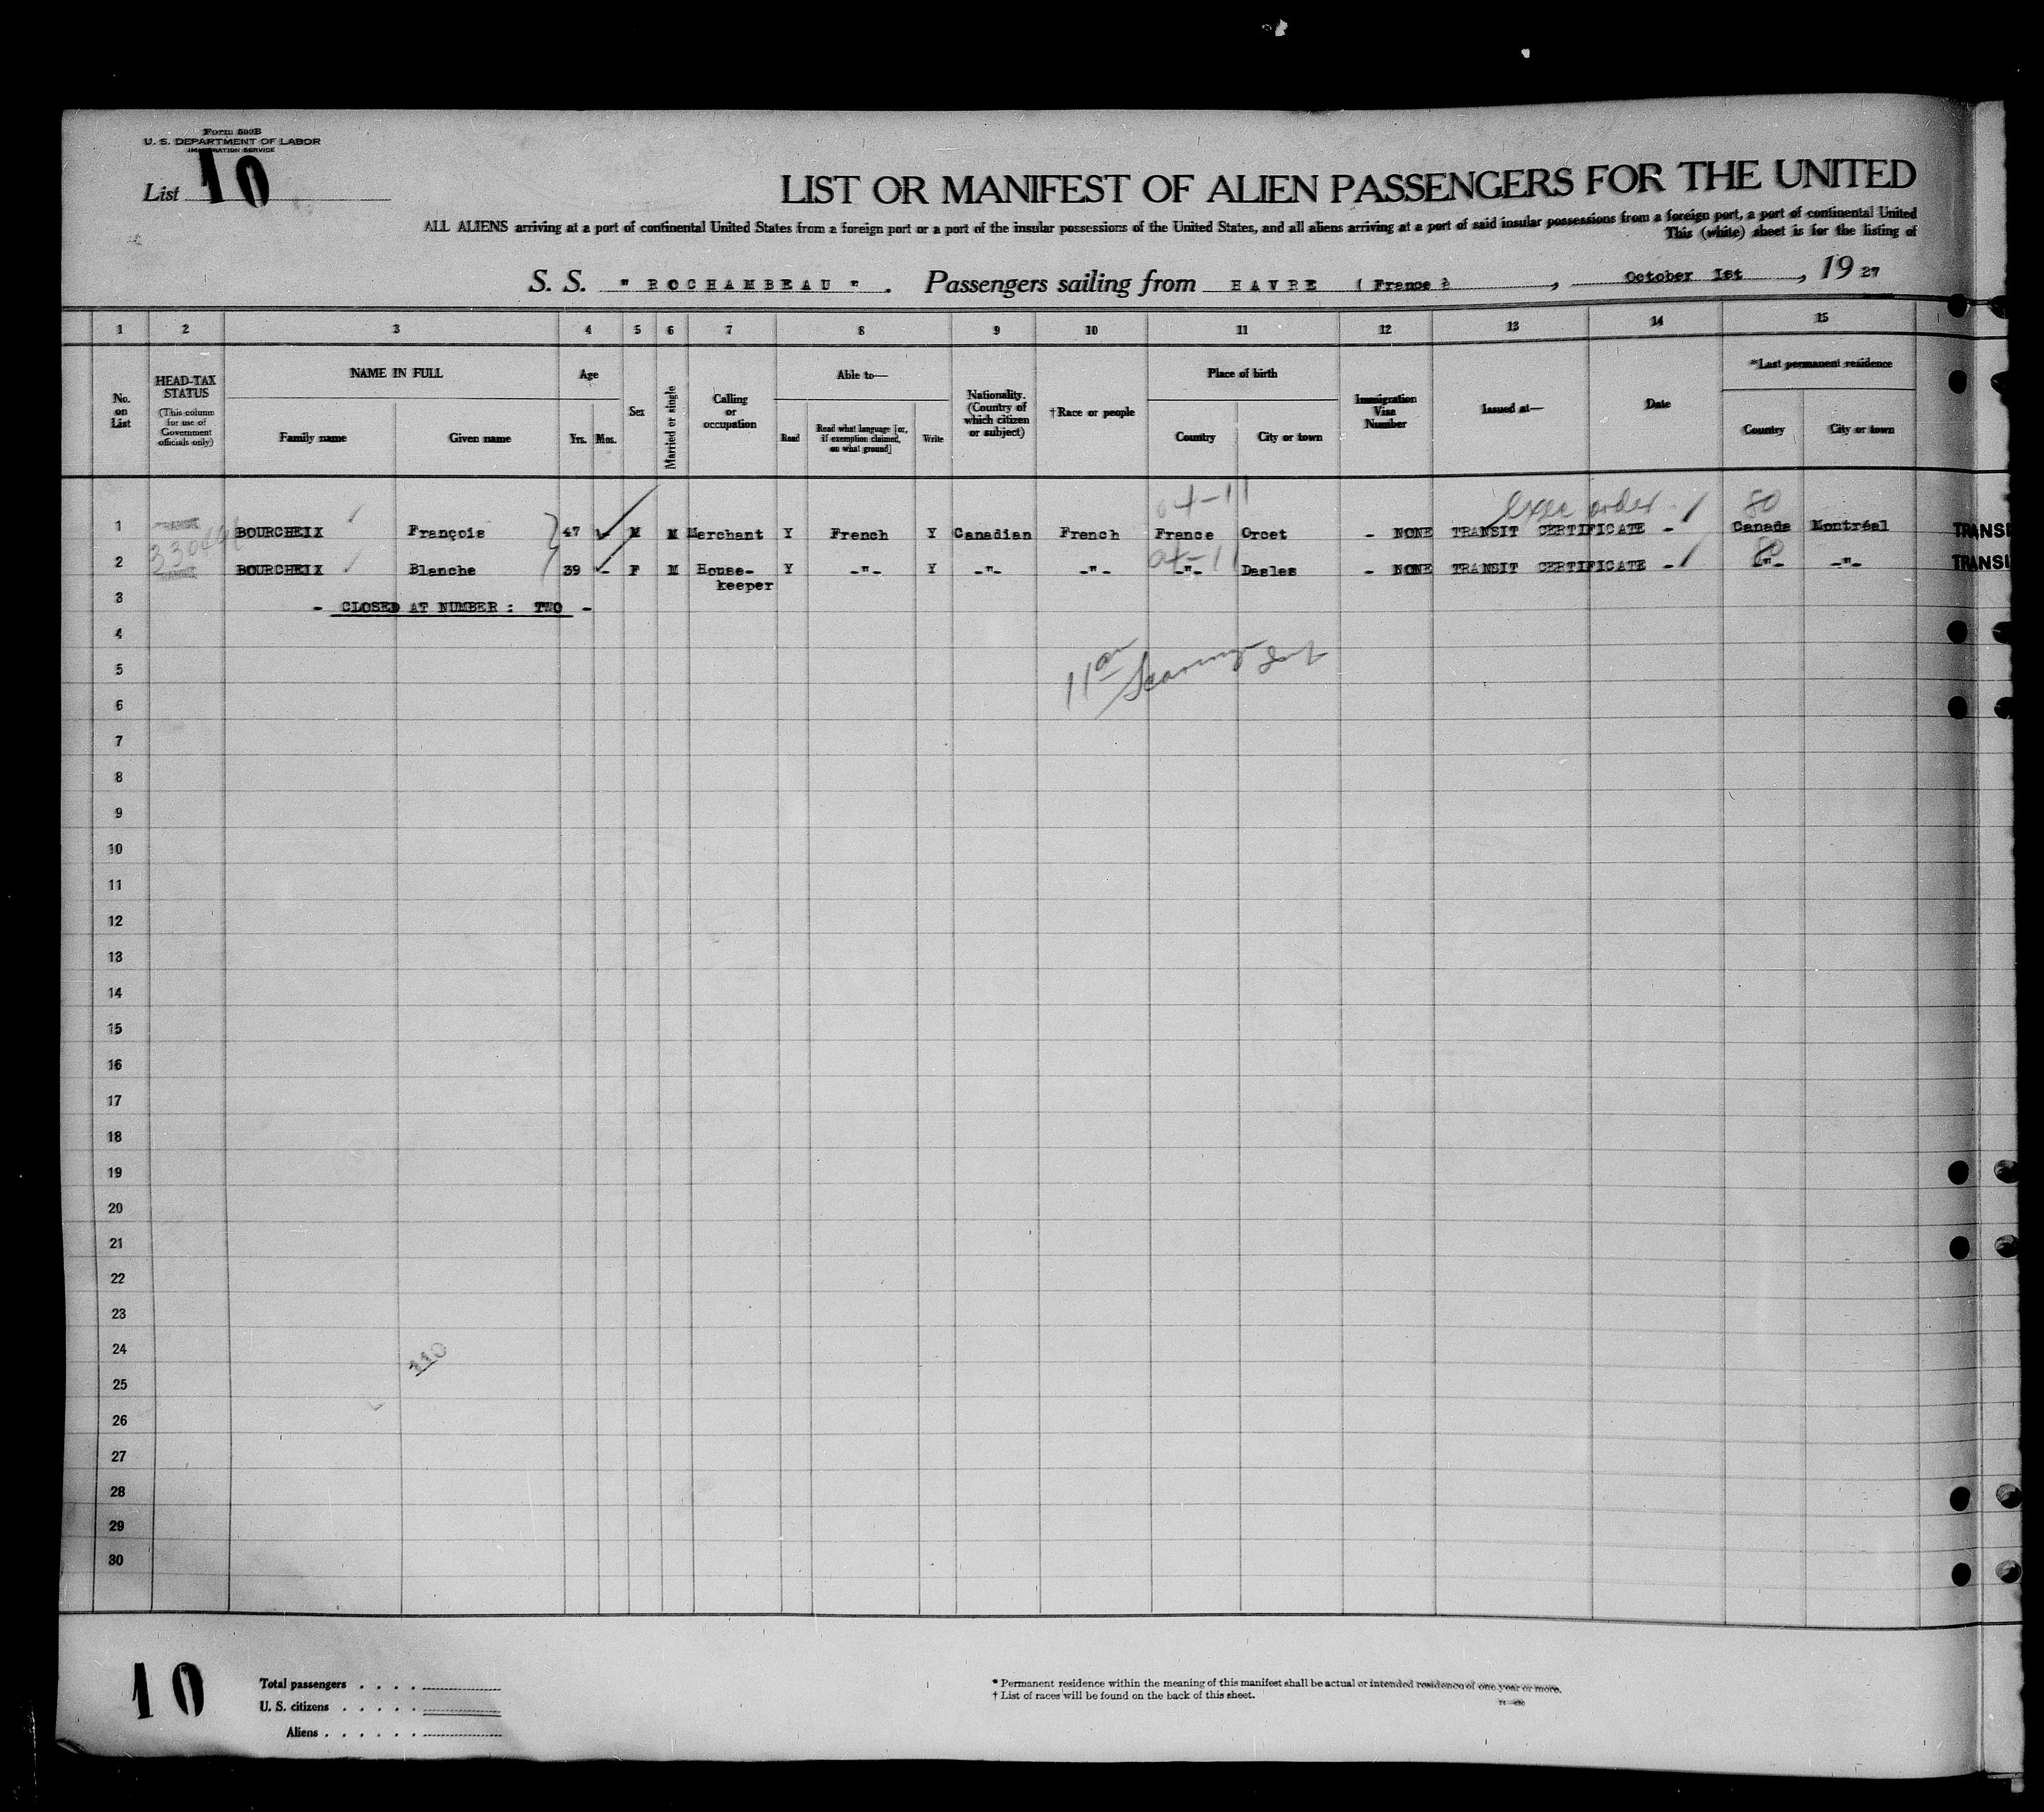 Form 500B
U. S. DEPARTMENT OF LABOR
IMMIGRATION SERVICE
List 10
LIST OR MANIFEST OF ALIEN PASSENGERS FOR THE UNITED
ALL ALIENS arriving at a port of continental United States from a foreign port or a port of the insular possessions of the United States, and all aliens arriving at a port of said insular possessions from a foreign port, a port of continental United
This (white) sheet is for the listing of
S. S. " ROCHAMBEAU " . Passengers sailing from HAVRE ( France ) , October 1st , 19 27
1 2 3 4 5 6 7 8 9 10 11 12 13 14 15
No. on List
HEAD-TAX STATUS
(This column for use of Government officials only)
NAME IN FULL
Family name Given name
Age
Yrs. Mos.
Sex
Married or single
Calling or occupation
Able to—
Read
Read what language [or, if exemption claimed, on what ground]
Write
Nationality. (Country of which citizen or subject)
†Race or people
Place of birth
Country City or town
Immigration Visa Number
Issued at—
Date
*Last permanent residence
Country City or town
04-11 exec order 80
1 TRANSIT BOURCHEIX François 47 - M M Merchant Y French Y Canadian French France Orcet - NONE TRANSIT CERTIFICATE - Canada Montréal TRANSI
04-11 80
2 TRANSIT BOURCHEIX Blanche 39 - F M House-keeper Y -"- Y -"- -"- -"- Dasles - NONE TRANSIT CERTIFICATE - -"- -"- TRANSI
3 - CLOSED AT NUMBER : TWO -
4
5
11 am
6
7
8
9
10
11
12
13
14
15
16
17
18
19
20
21
22
23
24
110
25
26
27
28
29
30
10
Total passengers . . . .
U. S. citizens . . . . .
Aliens . . . . . .
* Permanent residence within the meaning of this manifest shall be actual or intended residence of one year or more.
† List of races will be found on the back of this sheet.